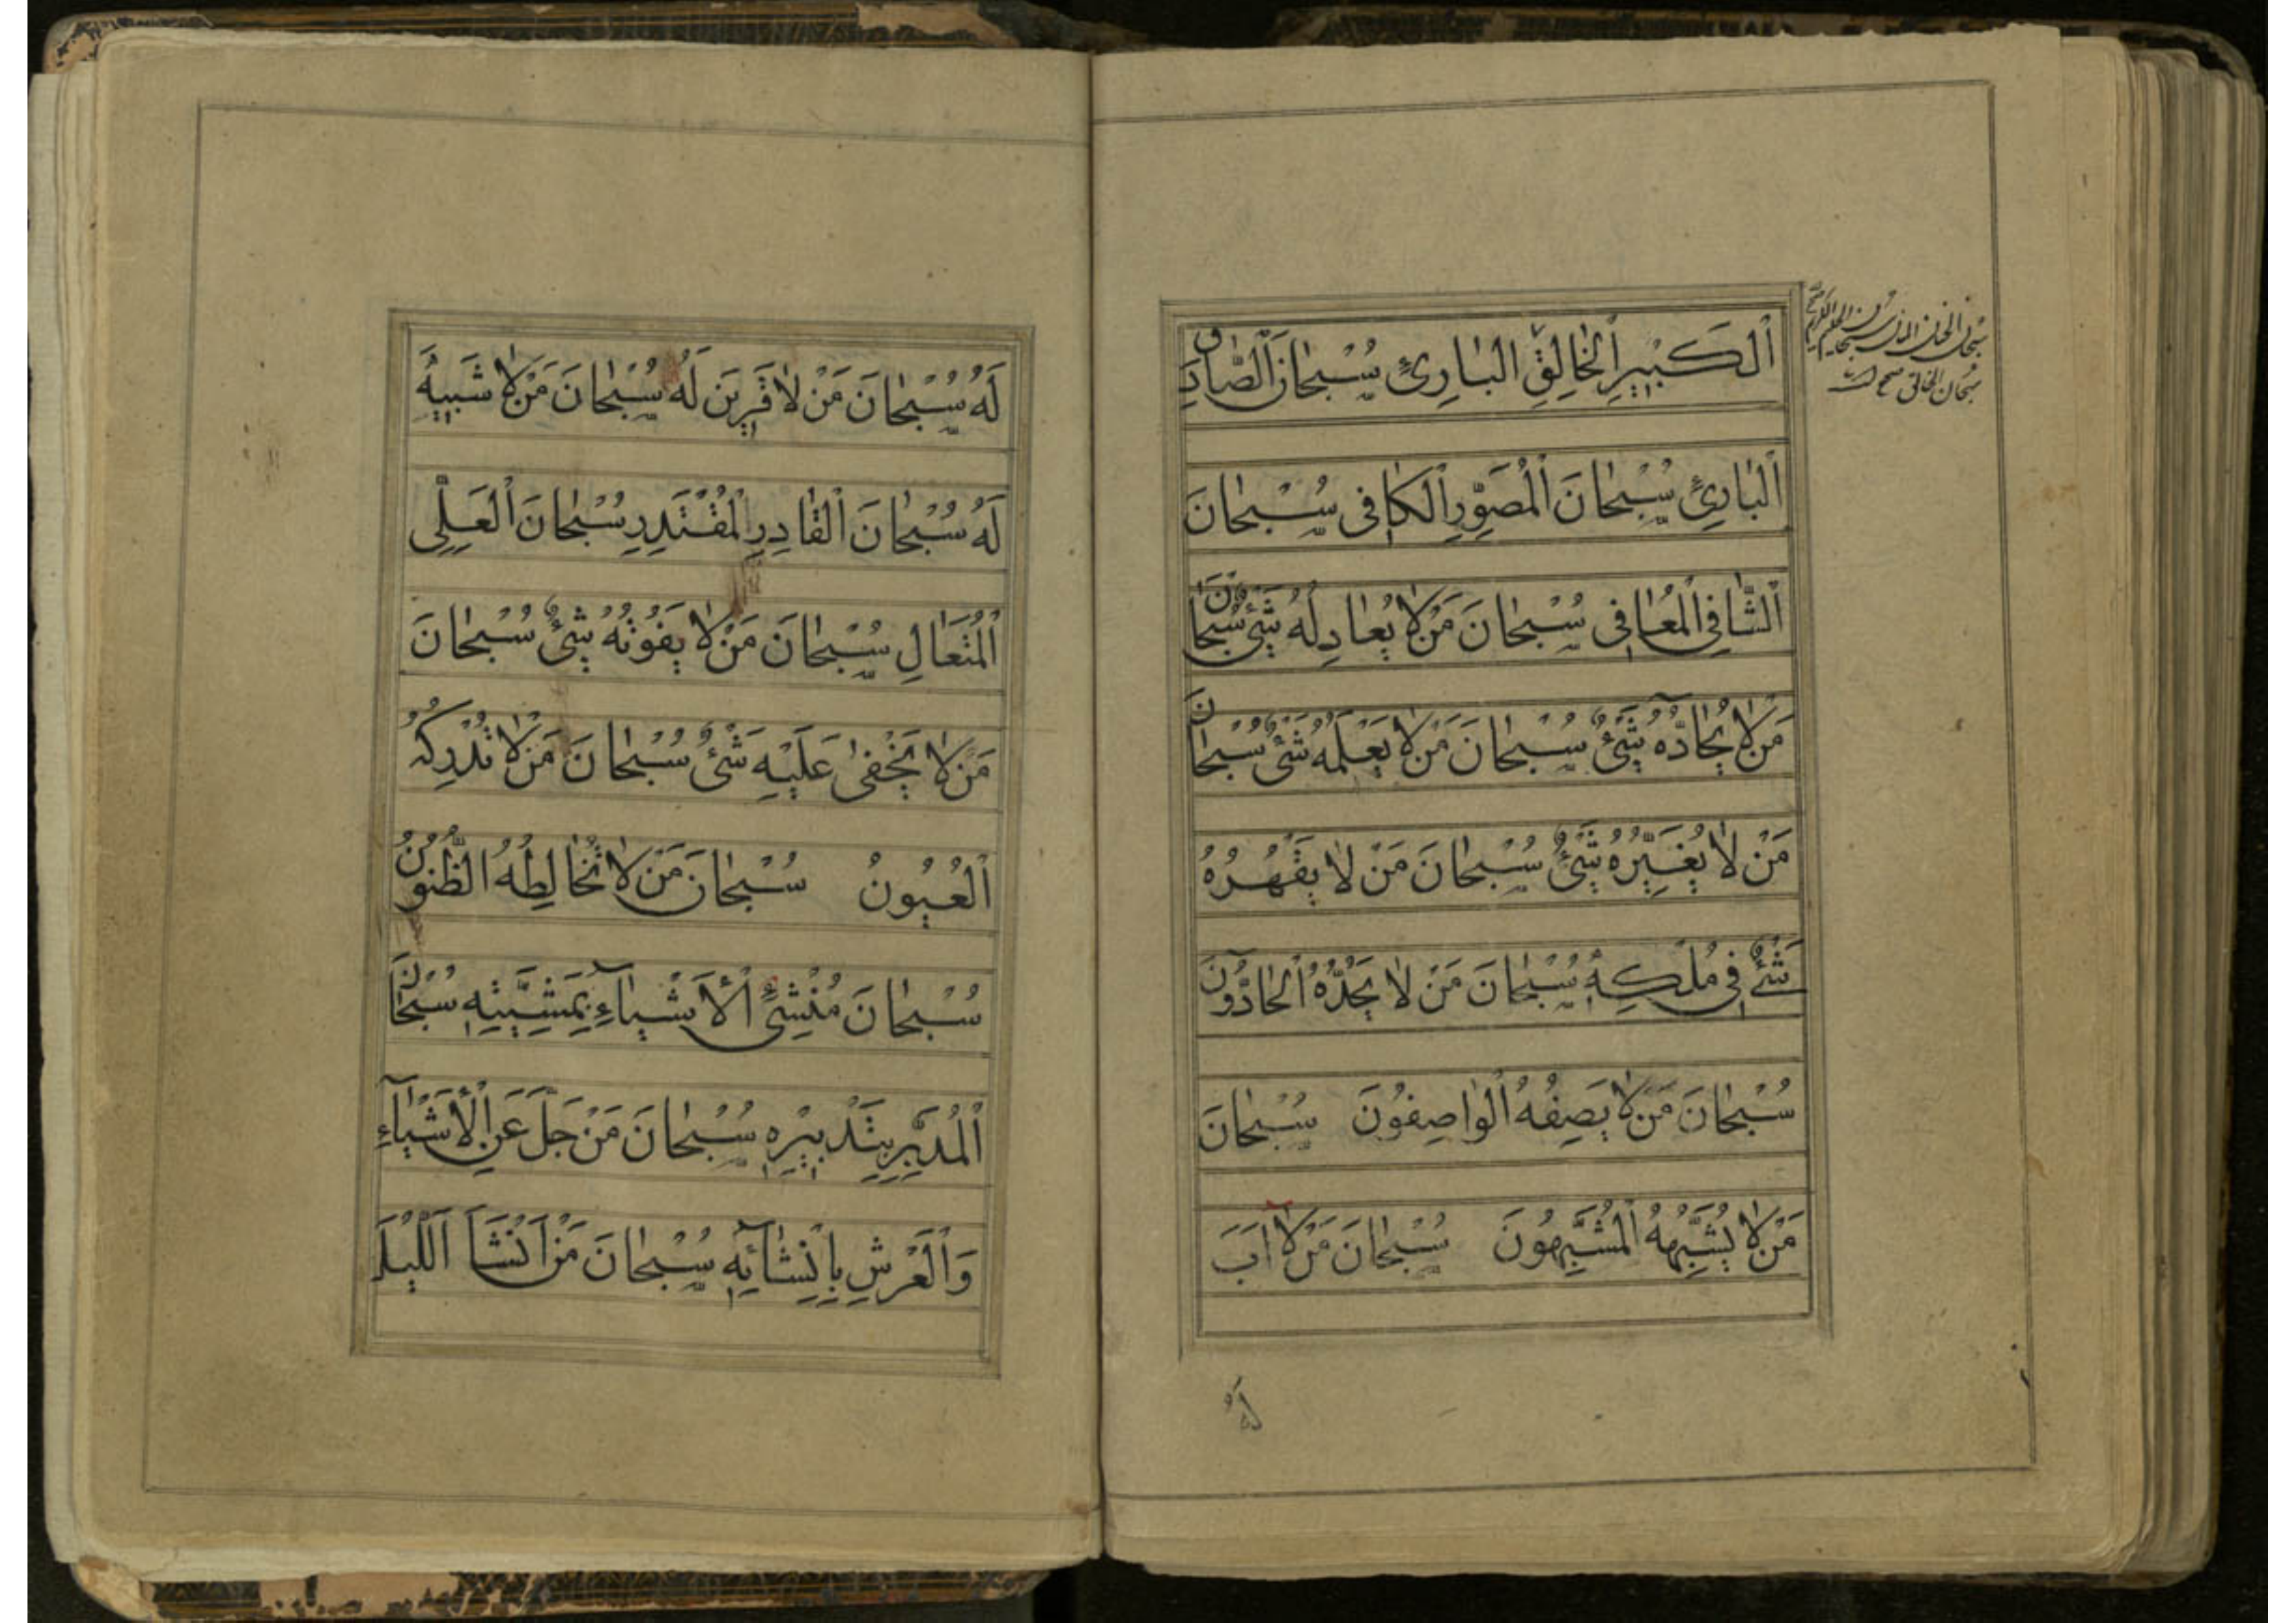 اَلْكَبٖيرِ الْخالِقِ الْبارِئِ سُبْحانَ الصّادِقِ
اَلْبارِئِ سُبْحانَ الْمُصَوِّرِ الْكافٖى سُبْحانَ
الشّافِى الْمُعافٖى سُبْحانَ مَنْ لا يُعادِلُهُ شَىْءٌ سُبْحانَ
مَنْ لا يُحادُّهُ شَىْءٌ سُبْحانَ مَنْ لا يَعْلَمُهُ شَىْءٌ سُبْحانَ
مَنْ لا يُغَيِّرُهُ شَىْءٌ سُبْحانَ مَنْ لا يَقْهَرُهُ
شَىْءٌ فٖى مُلْكِهٖ سُبْحانَ مَنْ لا يَحُدُّهُ الْحادُّونَ
سُبْحانَ مَنْ لا يَصِفُهُ الْواصِفُونَ سُبْحانَ
مَنْ لا يُشَبِّهُهُ الْمُشَبِّهُونَ سُبْحانَ مَنْ لا اَبَ
سبحان الخالق صح
لَهُ
لَهُ سُبْحانَ مَنْ لا قَرٖينَ لَهُ سُبْحانَ مَنْ لا شَبٖيهَ
لَهُ سُبْحانَ الْقادِرِ الْمُقْتَدِرِ سُبْحانَ الْعَلِىِّ
الْمُتَعالِ سُبْحانَ مَنْ لا يَفُوتُهُ شَىْءٌ سُبْحانَ
مَنْ لا يَخْفٰى عَلَيْهِ شَىْءٌ سُبْحانَ مَنْ لا تُدْرِكُهُ
الْعُيُونُ سُبْحانَ مَنْ لا تُخالِطُهُ الظُّنُونُ
سُبْحانَ مُنْشِئِ الْأَشْياءِ بِمَشِيَّتِهٖ سُبْحانَ
الْمُدَبِّرِ بِتَدْبٖيرِهٖ سُبْحانَ مَنْ جَلَّ عَنِ الْأَشْيآءِ
وَالْعَرْشِ بِاِنْشآئِهٖ سُبْحانَ مَنْ اَنْشَاَ اللَّيْلَ